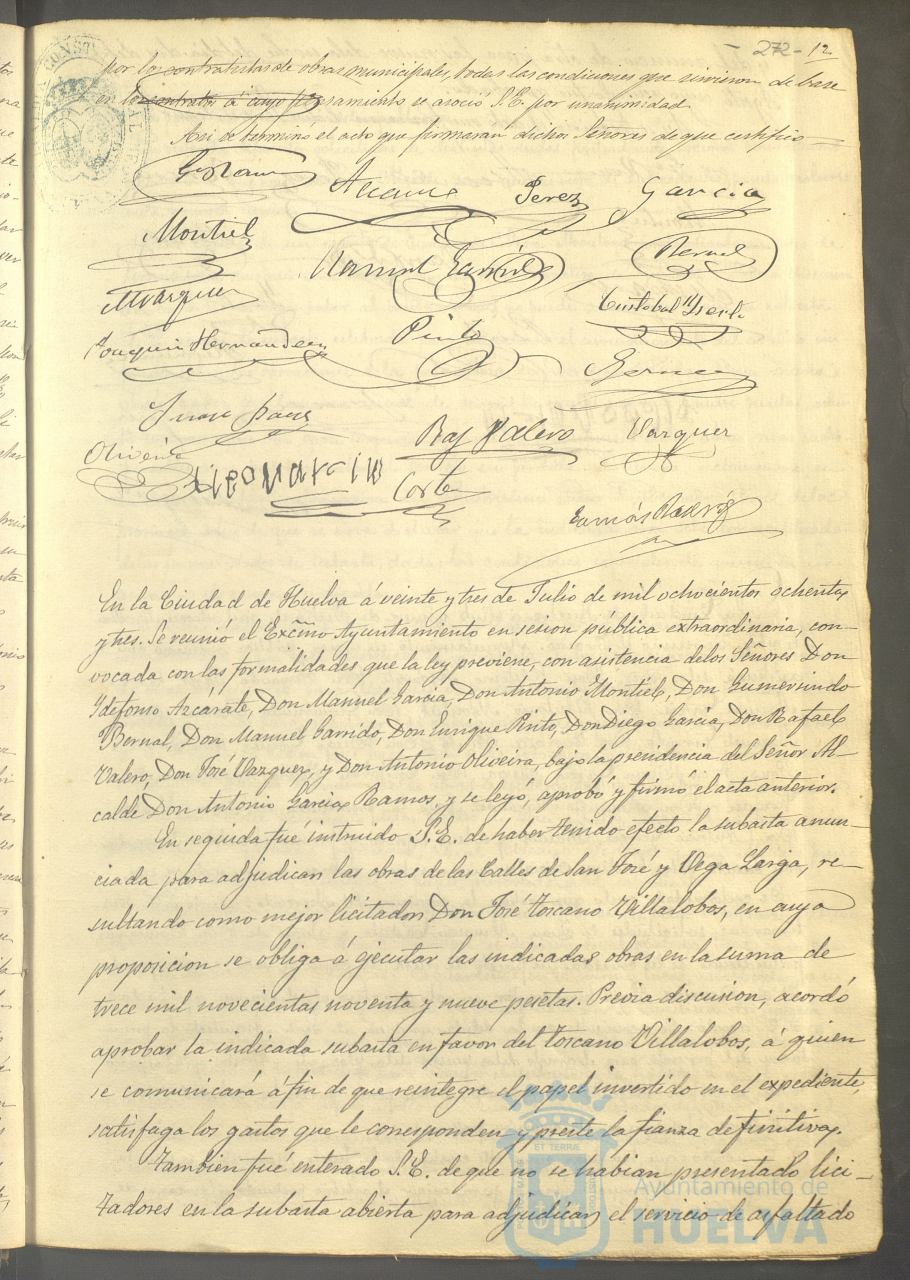 272 - 12
por los contratistas de obras municipales, todas las condiciones que sirvieron de base
en los contratos á cuyo se asoció S.E. por unanimidad.
Asi se termino el acto que firmaran dichos Señores de que certifico
Perez García
Montiel Manuel Garrido Bernal
Marquez Cristobal
Joaquin Hernandez Pinto
Juan
Oliveira Raf Valero Vazquez
Corte
En la Ciudad de Huelva á veinte y tres de Julio de mil ochocientos ochenta
y tres. Se reunió el Excmo Ayuntamiento en sesion pública extraordinaria, con-
vocada con las formalidades que la ley previene, con asistencia de los Señores Don
Ildefonso Azcárate, Don Manuel Garcia, Don Antonio Montiel, Don Gumersindo
Bernal, Don Manuel Garrido, Don Enrique Pinto, Don Diego Garcia, Don Rafael
Valero, Don José Vazquez, y Don Antonio Oliveira, bajo la presidencia del Señor Al-
calde Don Antonio Garcia Ramos, y se leyó, aprobó y firmó el acta anterior.
En seguida fué instruido S.E. de haber tenido efecto la subasta anun-
ciada para adjudicar las obras de las Calles de San José y Vega Larga, re-
sultando como mejor licitador Don José Toscano Villalobos, en cuya
proposicion se obliga á ejecutar las indicadas obras en la suma de
trece mil novecientas noventa y nueve pesetas. Previa discusion, acordó
aprobar la indicada subasta en favor del Toscano Villalobos, á quien
se comunicará á fin de que reintegre el papel invertido en el expediente,
satisfaga los gastos que le corresponden y preste la fianza definitiva.
Tambien fué enterado S.E. de que no se habian presentado lici-
tadores en la subasta abierta para adjudicar el servicio de asfaltado
Ayuntamiento de
HUELVA